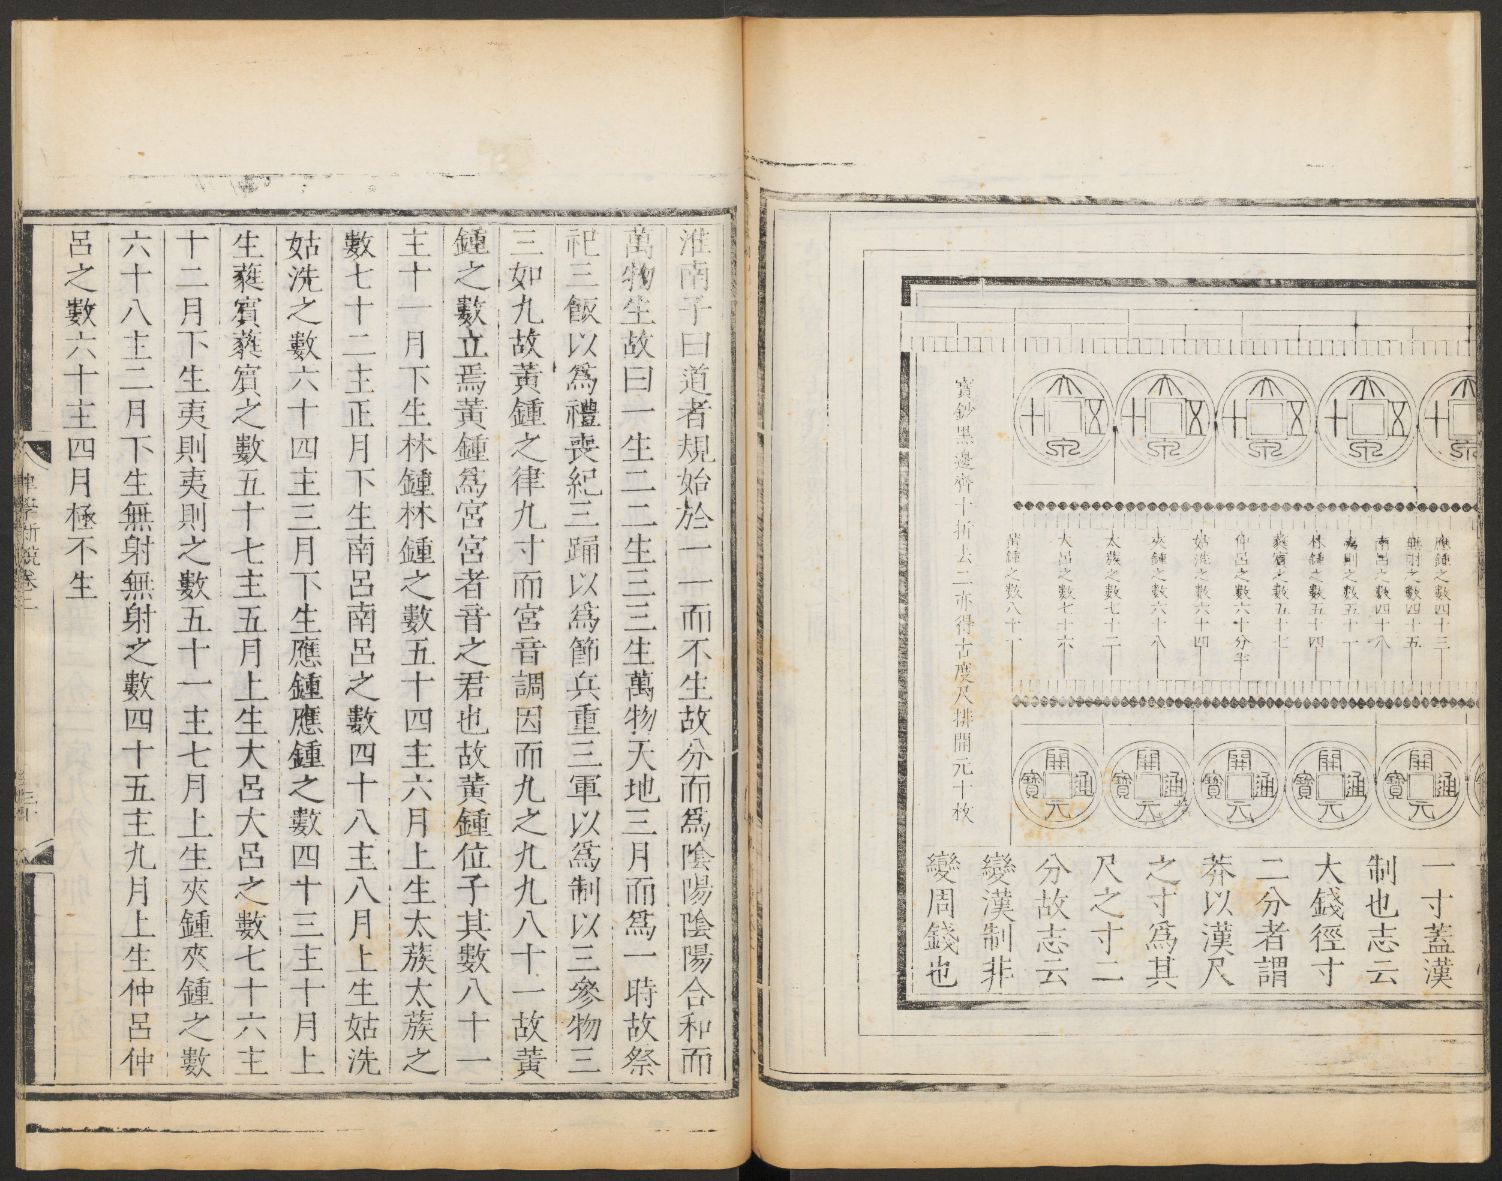 應鍾之數四十三
無射之數四十五
南呂之數四十八
夷則之數五十一
林鍾之數五十四
蕤賓之數五十七
仲呂之數六十分半
姑洗之數六十四
夾鍾之數六十八
太蔟之數七十二
大呂之數七十六
黃鍾之數八十一
大泉五十
大泉五十
大泉五十
大泉五十
開元通寶
開元通寶
開元通寶
開元通寶
開元通寶
寶鈔黑邊齊十折去二亦得古度尺排開元十枚
一寸蓋漢
制也志云
大錢徑寸
二分者謂
莽以漢尺
之寸為其
尺之寸二
分故志云
變漢制非
變周錢也
淮南子曰道者規始於一一而不生故分而為陰陽陰陽合和而
萬物生故曰一生二二生三三生萬物天地三月而為一時故祭
祀三飯以為禮喪紀三踊以為節兵重三軍以為制以三參物三
三如九故黃鍾之律九寸而宮音調因而九之九九八十一故黃
鍾之數立焉黃鍾為宮宮者音之君也故黃鍾位子其數八十一
主十一月下生林鍾林鍾之數五十四主六月上生太蔟太蔟之
數七十二主正月下生南呂南呂之數四十八主八月上生姑洗
姑洗之數六十四主三月下生應鍾應鍾之數四十三主十月上
生蕤賓蕤賓之數五十七主五月上生大呂大呂之數七十六主
十二月下生夷則夷則之數五十一主七月上生夾鍾夾鍾之數
六十八主二月下生無射無射之數四十五主九月上生仲呂仲
呂之數六十主四月極不生